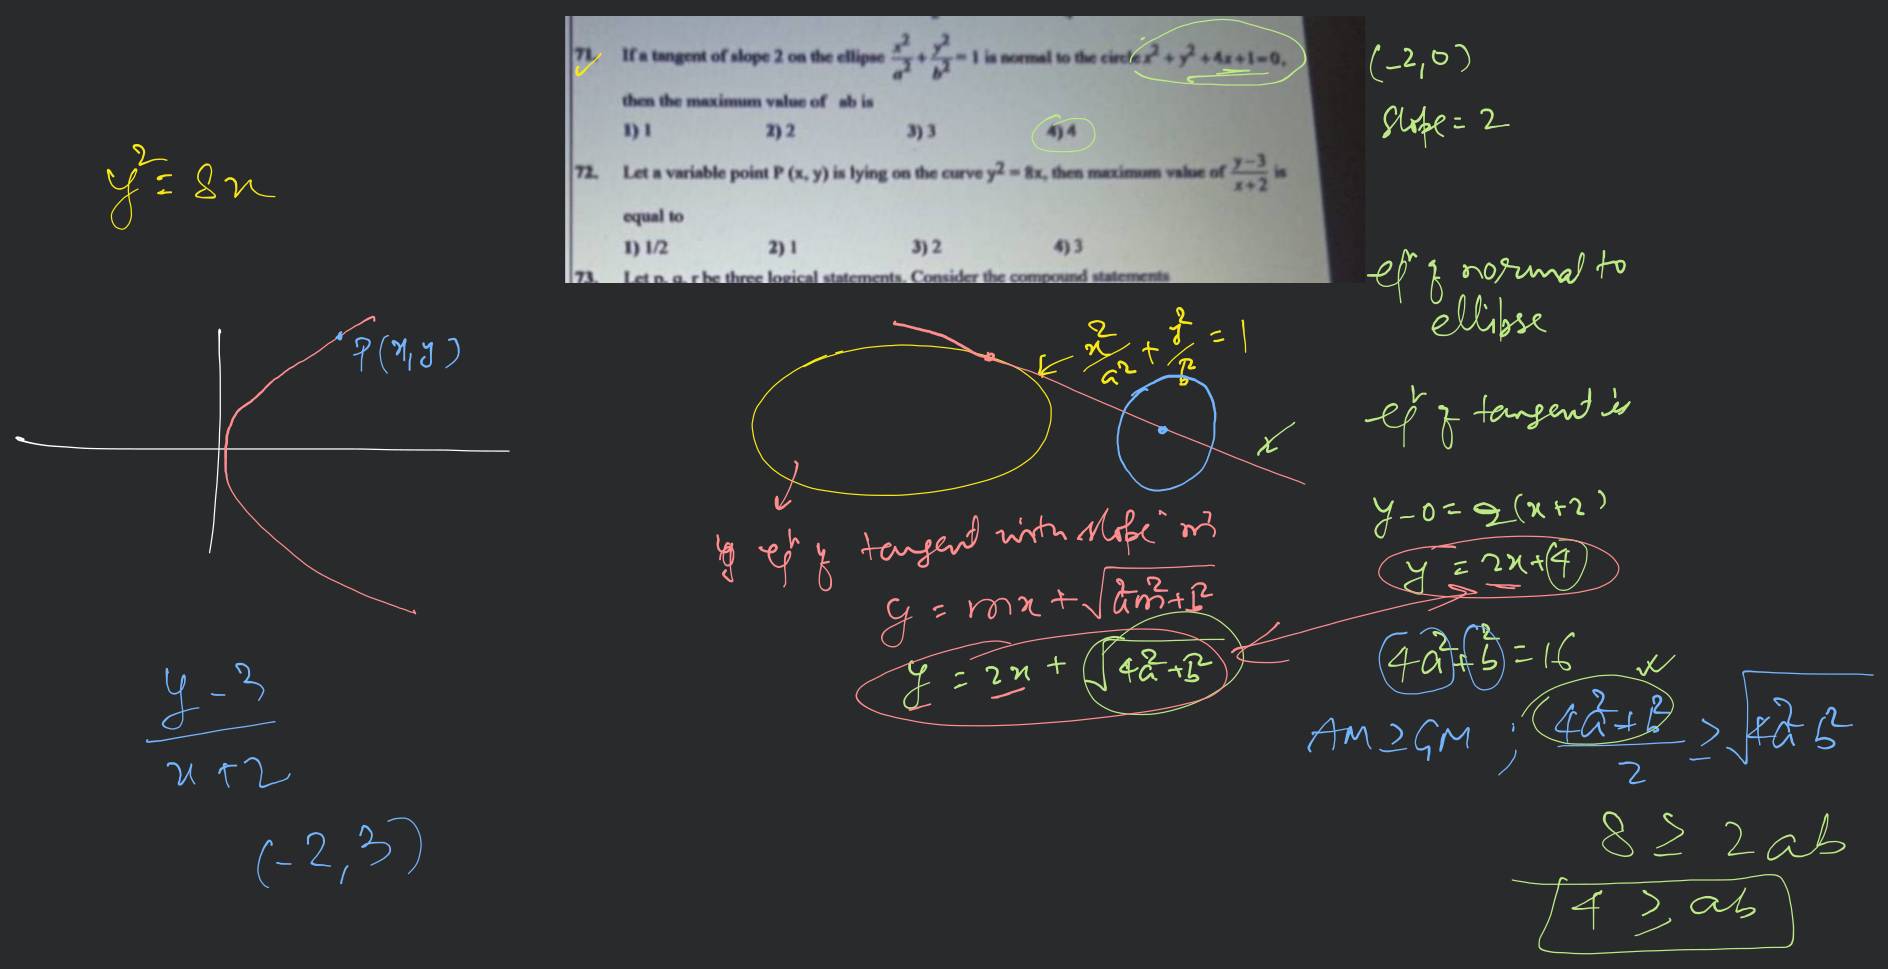 71. If a tangent of slope 2 on the ellipse x²/a² + y²/b² = 1 is normal to the circle x² + y² + 4x + 1 = 0,
then the maximum value of ab is
1) 1 2) 2 3) 3 4) 4
72. Let a variable point P (x, y) is lying on the curve y² = 8x, then maximum value of y-3/x+2 is
equal to
1) 1/2 2) 1 3) 2 4) 3
73. Let p, q, r be three logical statements. Consider the compound statements
(-2,0)
slope = 2
y² = 8x
eqⁿ of normal to
ellipse
P(x, y)
x²/a² + y²/b² = 1
eqⁿ of tangent is
y-0 = 2(x+2)
y = 2x+4
eqⁿ of tangent with slope "m"
y = mx + √a²m²+b²
y = 2x + √4a²+b²
4a²+b² = 16
AM ≥ GM ; 4a²+b²/2 ≥ √4a²b²
8 ≥ 2ab
4 ≥ ab
y-3
x+2
(-2,3)